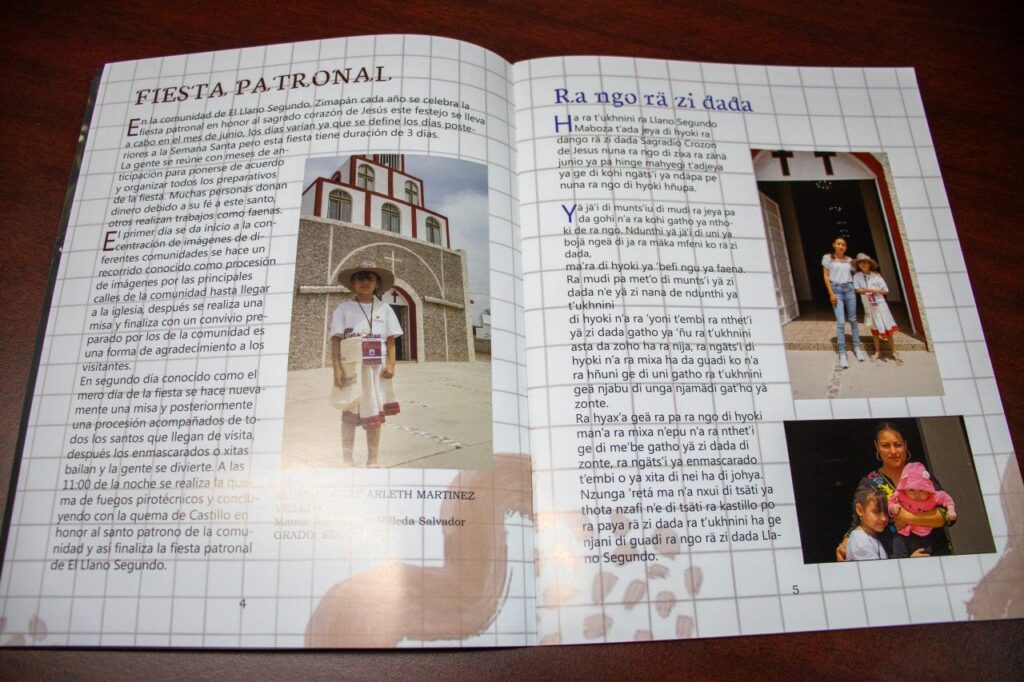 FIESTA PATRONAL
En la comunidad de El Llano Segundo, Zimapán cada año se celebra la
fiesta patronal en honor al sagrado corazón de Jesús este festejo se lleva
a cabo en el mes de junio, los días varían ya que se define los días poste-
riores a la Semana Santa pero esta fiesta tiene duración de 3 días.
La gente se reúne con meses de an-
ticipación para ponerse de acuerdo
y organizar todos los preparativos
de la fiesta. Muchas personas donan
dinero debido a su fé a este santo,
otros realizan trabajos como faenas.
El primer día se da inicio a la con-
centración de imágenes de di-
ferentes comunidades se hace un
recorrido conocido como procesión
de imágenes por las principales
calles de la comunidad hasta llegar
a la iglesia, después se realiza una
misa y finaliza con un convivio pre-
parado por los de la comunidad es
una forma de agradecimiento a los
visitantes.
En segundo día conocido como el
mero día de la fiesta se hace nueva-
mente una misa y posteriormente
una procesión acompañados de to-
dos los santos que llegan de visita,
después los enmascarados o xitas
bailan y la gente se divierte. A las
11:00 de la noche se realiza la que-
ma de fuegos pirotécnicos y conclu-
yendo con la quema de Castillo en
honor al santo patrono de la comu-
nidad y así finaliza la fiesta patronal
de El Llano Segundo.
ARLETH MARTINEZ
Mamá: Villeda Salvador
GRADO:
4
Ra ngo rä zi dada
Ha ra t'ukhnini ra Llano Segundo
Maboza t'ada jeya di hyoki ra
dängo rä zi dada Sagradio Crozon
de Jesus nuna ra ngo di zixa ra zänä
junio ya pa hinge mahyegi t'adjeya
ya ge di kohi ngäts'i ya ndäpa pe
nuna ra ngo di hyoki hñupa.
Yä jä'i di munts'iu di mudi ra jeya pa
da gohi n'a ra kohi gatho ya ntho
ki de ra ngo. Ndunthi yä jä'i di uni ya
bojä ngeä di ja ra mäka mfeni ko rä zi
dada,
ma'ra di hyoki ya 'befi ngu ya faena.
Ra mudi pa met'o di munts'i yä zi
dada n'e yä zi nana de ndunthi ya
t'ukhnini
di hyoki n'a ra 'yoni t'embi ra nthet'i
yä zi dada gatho ya 'ñu ra t'ukhnini
asta da zoho ra nija, ra ngäts'i di
hyoki n'a ra mixa ha da guadi ko n'a
ra hñuni ge di uni gatho ra t'ukhnini
geä njabu di unga njamädi gat'ho yä
zonte.
Ra hyax'a geä ra pa ra ngo di hyoki
män'a ra mixa n'epu n'a ra nthet'i
ge di me'be gatho yä zi dada di
zonte, ra ngäts'i ya enmascarado
t'embi o ya xita di nei ha di johya.
Nzunga 'retá ma n'a nxui di tsäti ya
thota nzafi n'e di tsäti ra kastillo po
ra paya rä zi dada ra t'ukhnini ha ge
njani di guadi ra ngo rä zi dada Lla-
no Segundo.
5